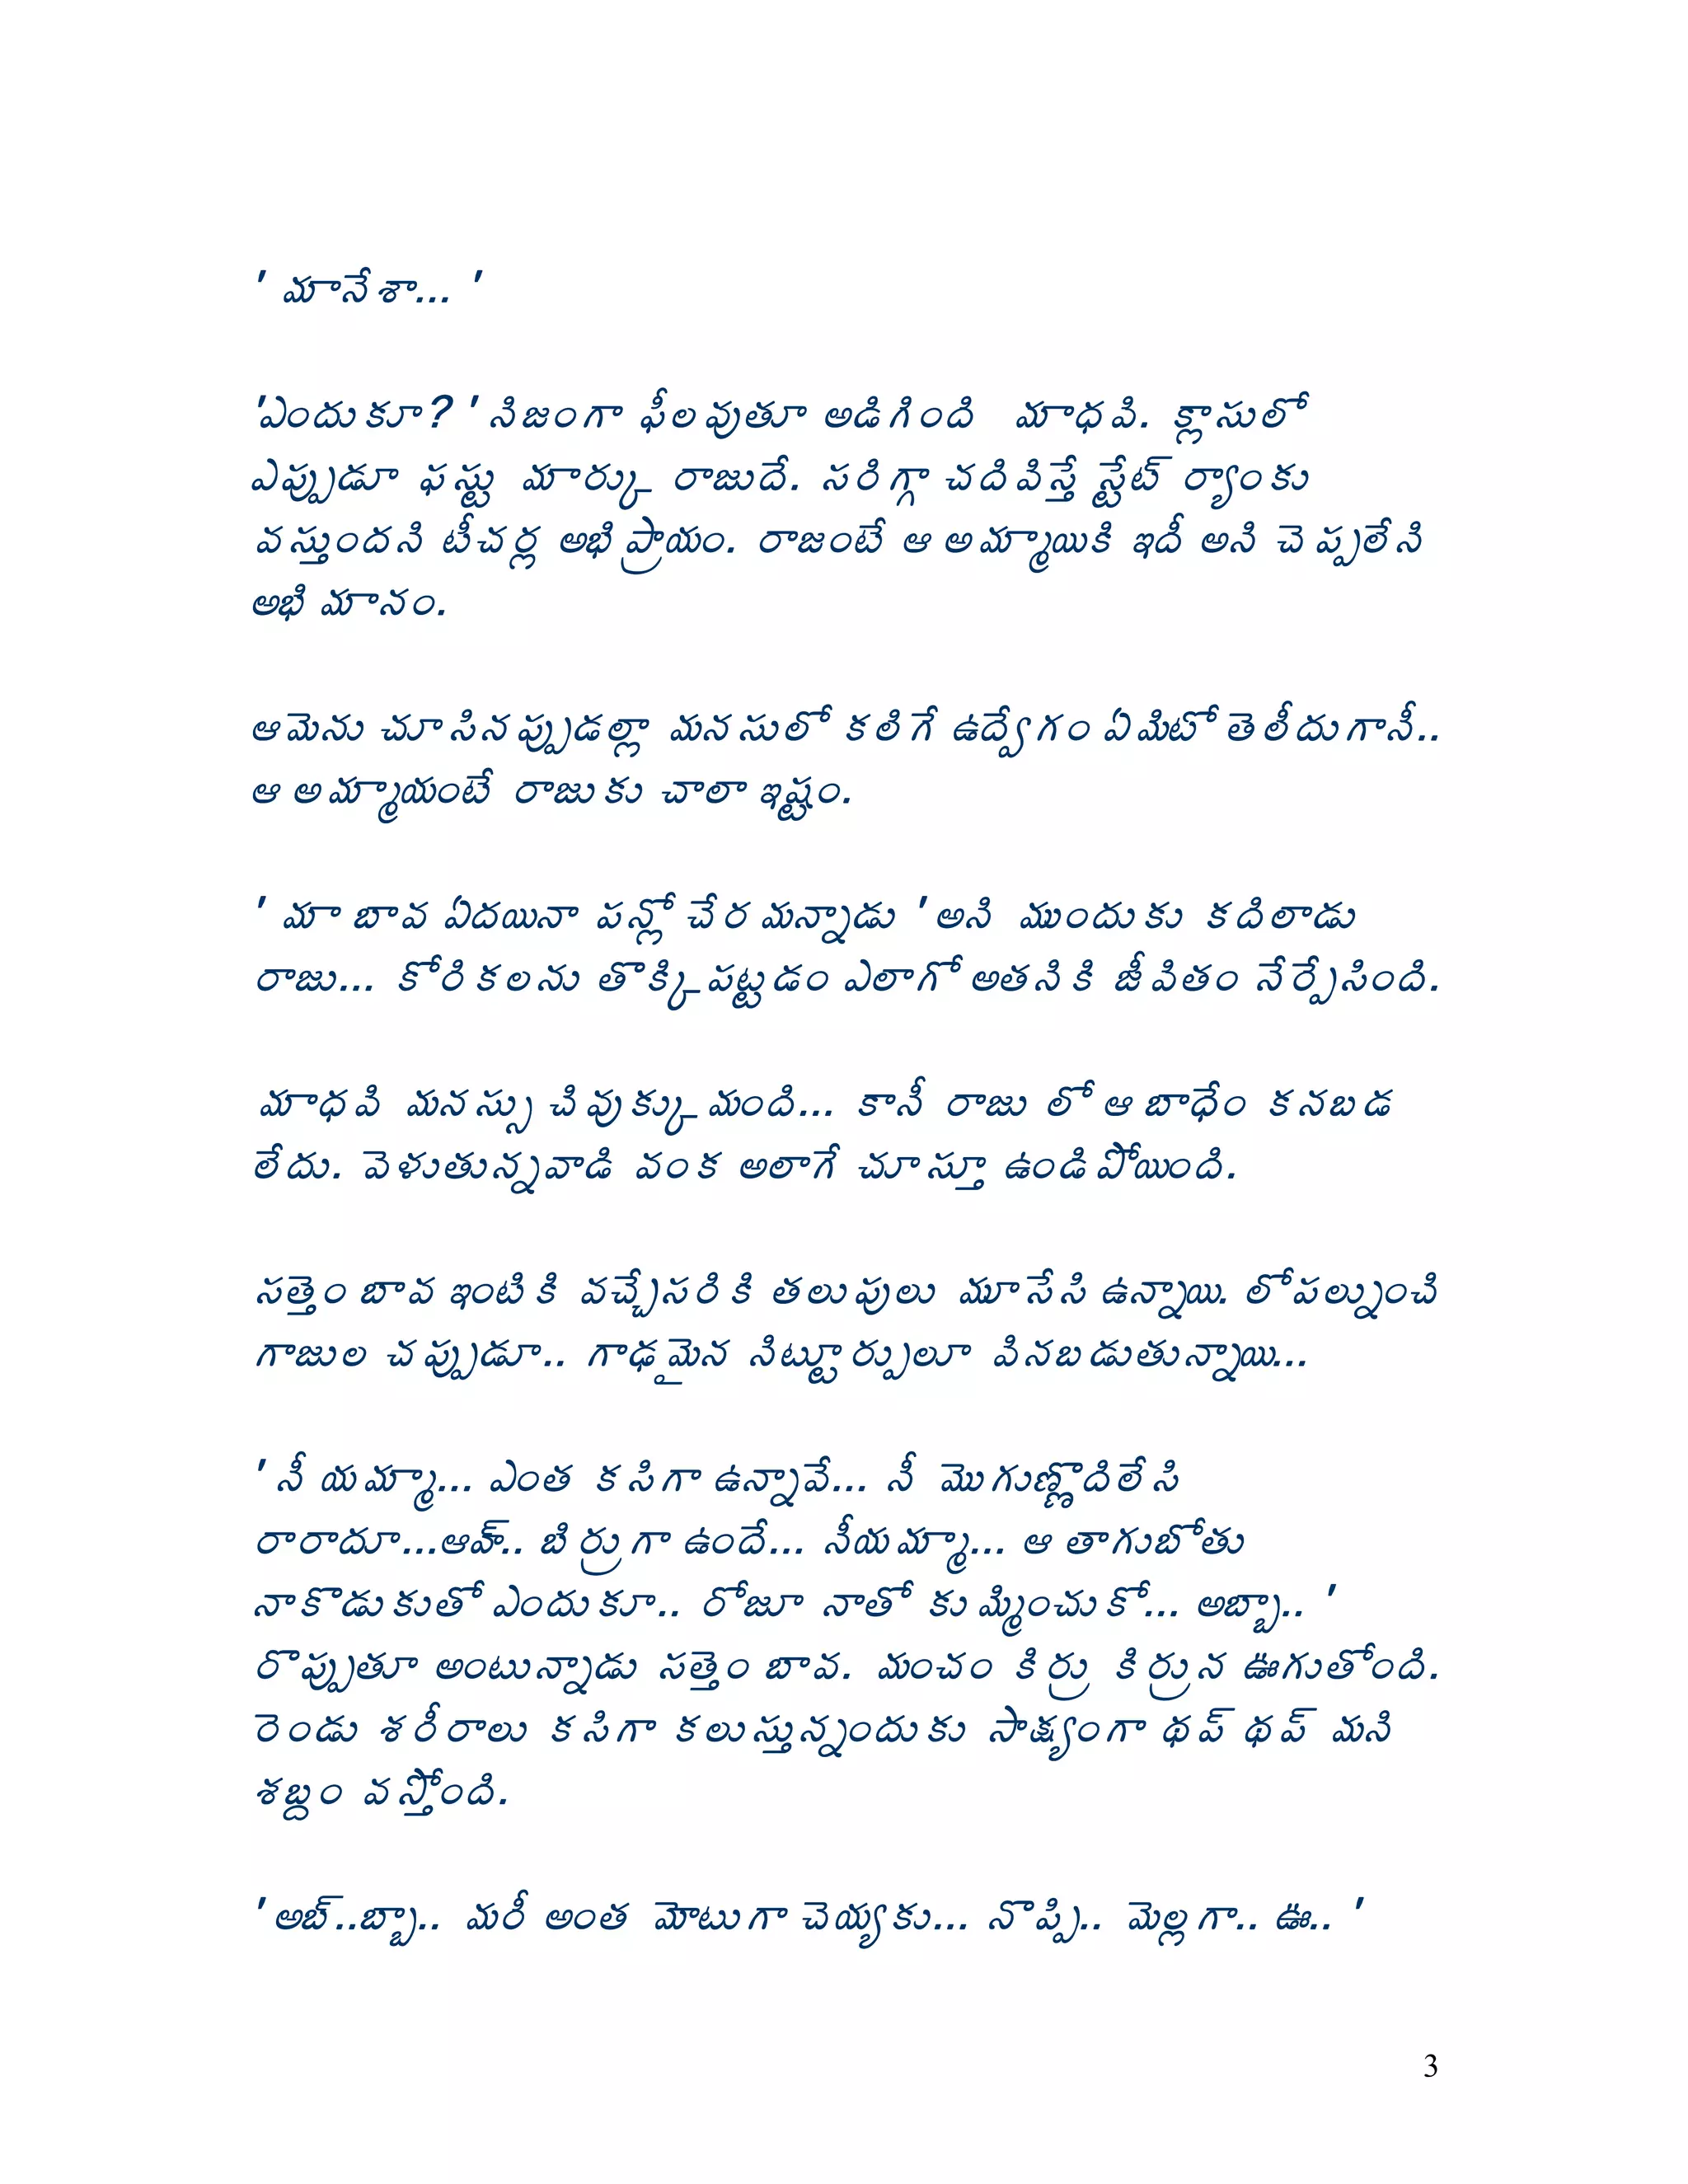 ' మానేశా... '
'ఎందుకూ? ' నిజంగా ఫీలవుతూ అడిగింది మాధవి. క్లాసులో
ఎప్పుడూ ఫస్టు మార్కు రాజుదే. సరిగ్గా చదివిస్తే స్టేట్ ర్యాంకు
వస్తుందని టీచర్ల అభిప్రాయం. రాజంటే ఆ అమ్మాయికి ఇదీ అని చెప్పలేని
అభిమానం.
ఆమెను చూసినప్పుడల్లా మనసులో కలిగే ఉద్వేగం ఏమిటో తెలీదుగానీ..
ఆ అమ్మాయంటే రాజుకు చాలా ఇష్టం.
' మా బావ ఏదయినా పన్లో చేరమన్నాడు ' అని ముందుకు కదిలాడు
రాజు... కోరికలను తొక్కిపట్టడం ఎలాగో అతనికి జీవితం నేర్పేసింది.
మాధవి మనస్సు చివుక్కుమంది... కానీ రాజు లో ఆ బాధేం కనబడ
లేదు. వెళుతున్నవాడి వంక అలాగే చూస్తూ ఉండిపోయింది.
సత్తెం బావ ఇంటికి వచ్చేసరికి తలుపులు మూసేసి ఉన్నాయి. లోపల్నుంచి
గాజుల చప్పుడూ.. గాఢమైన నిట్టూర్పులూ వినబడుతున్నాయి...
' నీ యమ్మా... ఎంత కసిగా ఉన్నావే... నీ మొగుణ్ణొదిలేసి
రారాదూ...ఆహ్.. బిర్రుగా ఉందే... నీయమ్మా... ఆ తాగుబోతు
నాకొడుకుతో ఎందుకూ.. రోజూ నాతో కుమ్మించుకో... అబ్బా.. '
రొప్పుతూ అంటున్నాడు సత్తెం బావ. మంచం కిర్రు కిర్రున ఊగుతోంది.
రెండు శరీరాలు కసిగా కలుస్తున్నందుకు సాక్ష్యంగా థప్ థప్ మని
శబ్దం వస్తోంది.
' అబ్..బ్బా.. మరీ అంత మోటుగా చెయ్యకు... నొప్పి.. మెల్లగా.. ఊ.. '
3